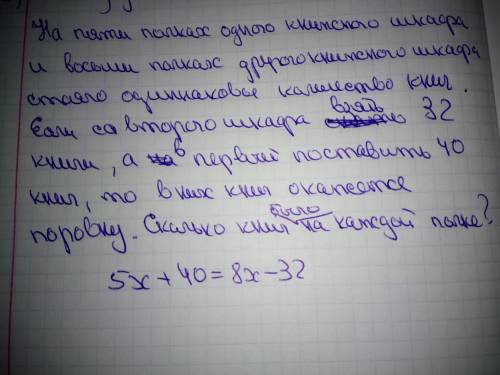 На пяти полках одного книжного шкафа
и восьми полках другого книжного шкафа
стояло одиннаковое количество книг.
Если со второго шкафа взять 32
книги, а в первый поставить 40
книг, то в них книг окажется
поровну. Сколько книг было на каждой полке?
5x + 40 = 8x - 32